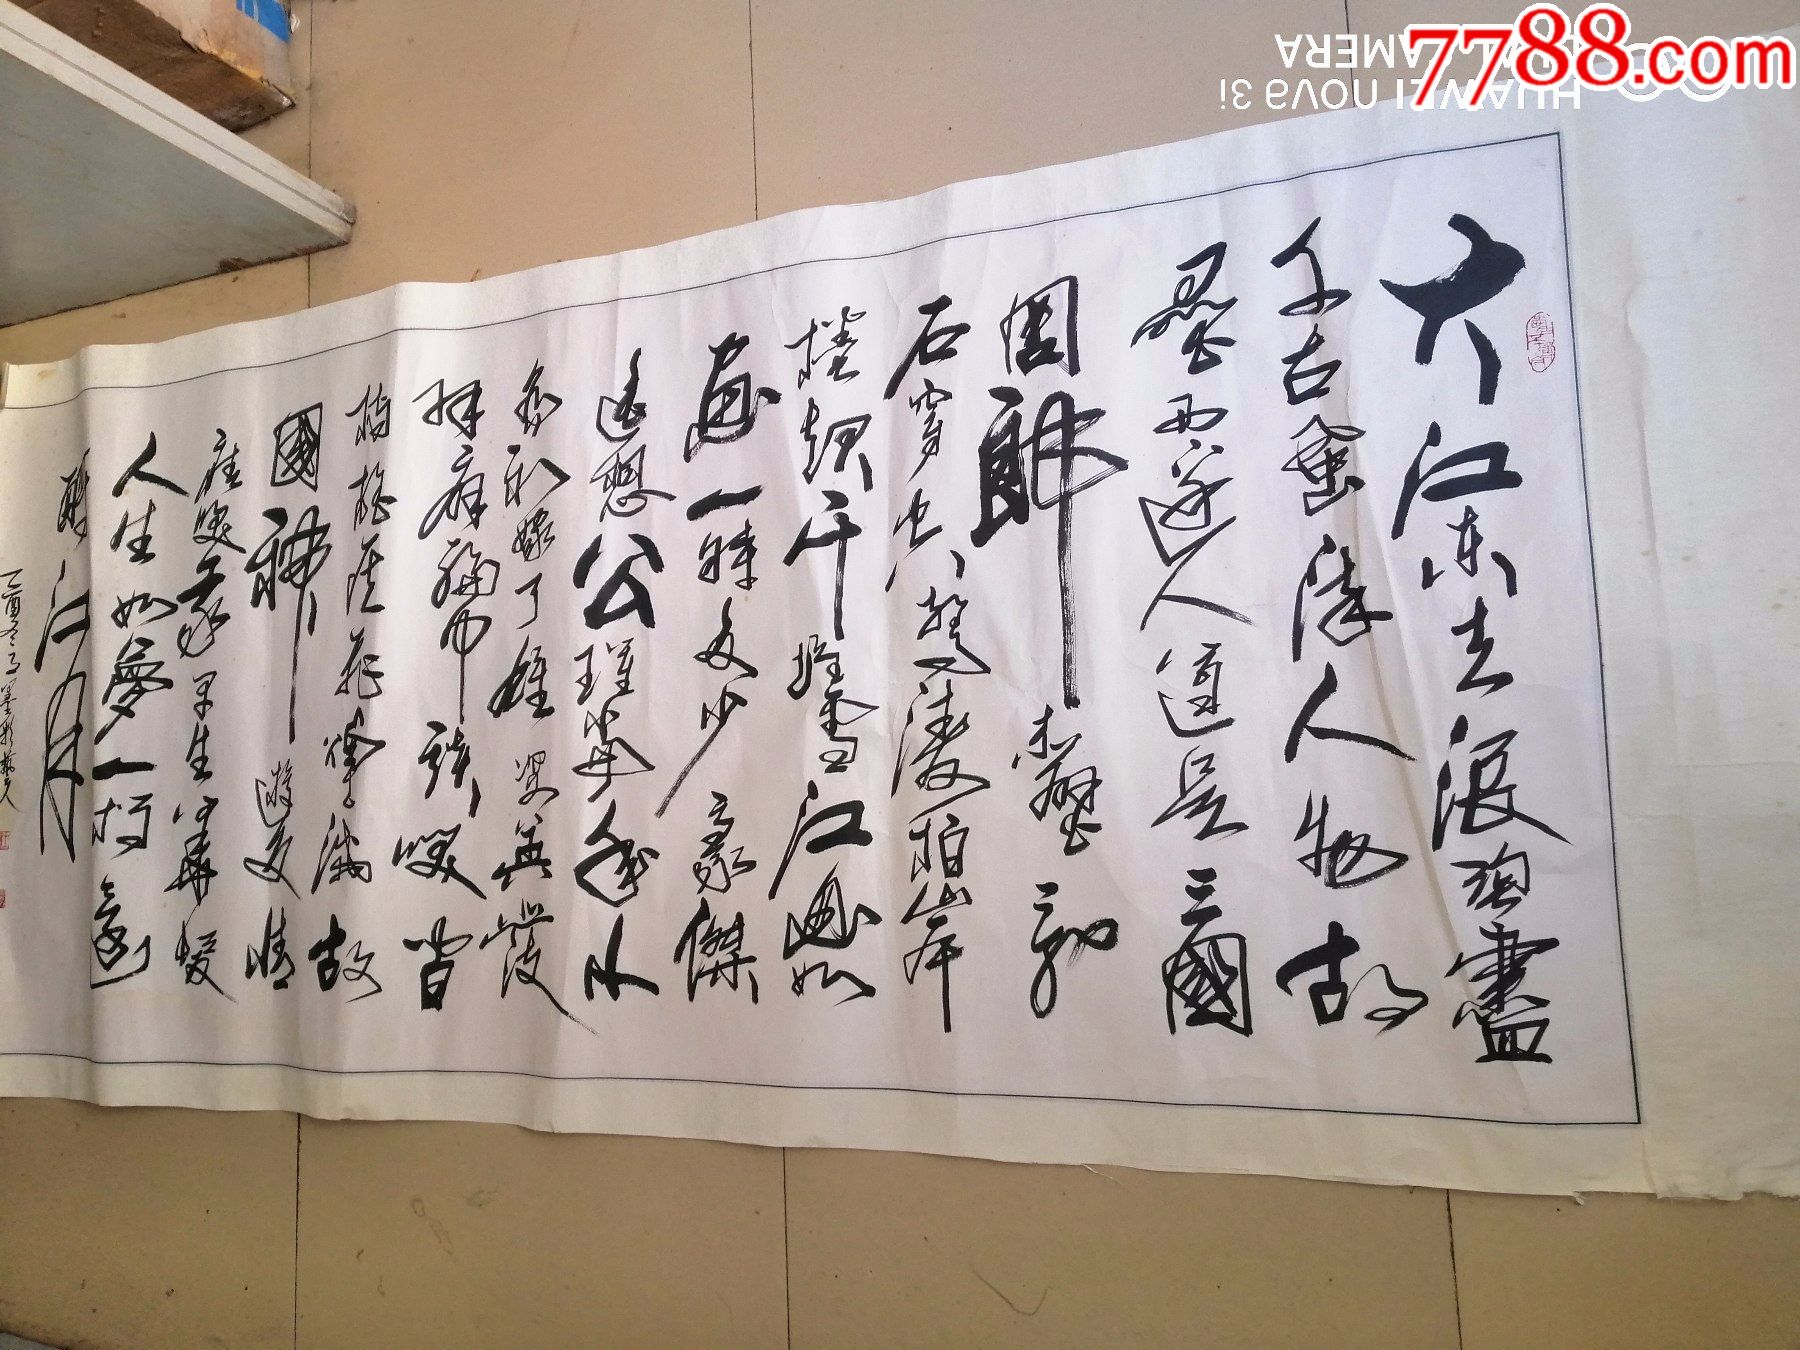 7788.com
HUAWEI nova 3i
CAMERA
大江东去浪淘盡
千古風流人物故
壘西邊人道是三國
周郎赤壁亂
石穿空驚濤拍岸
捲起千堆雪江如
畫一時多少豪傑
遙想公瑾當年小
喬初嫁了雄姿英發
羽扇綸巾談笑間
檣櫓灰飛煙滅故
國神遊多情
應笑我早生華髮
人生如夢一樽還
酹江月
乙酉冬月墨